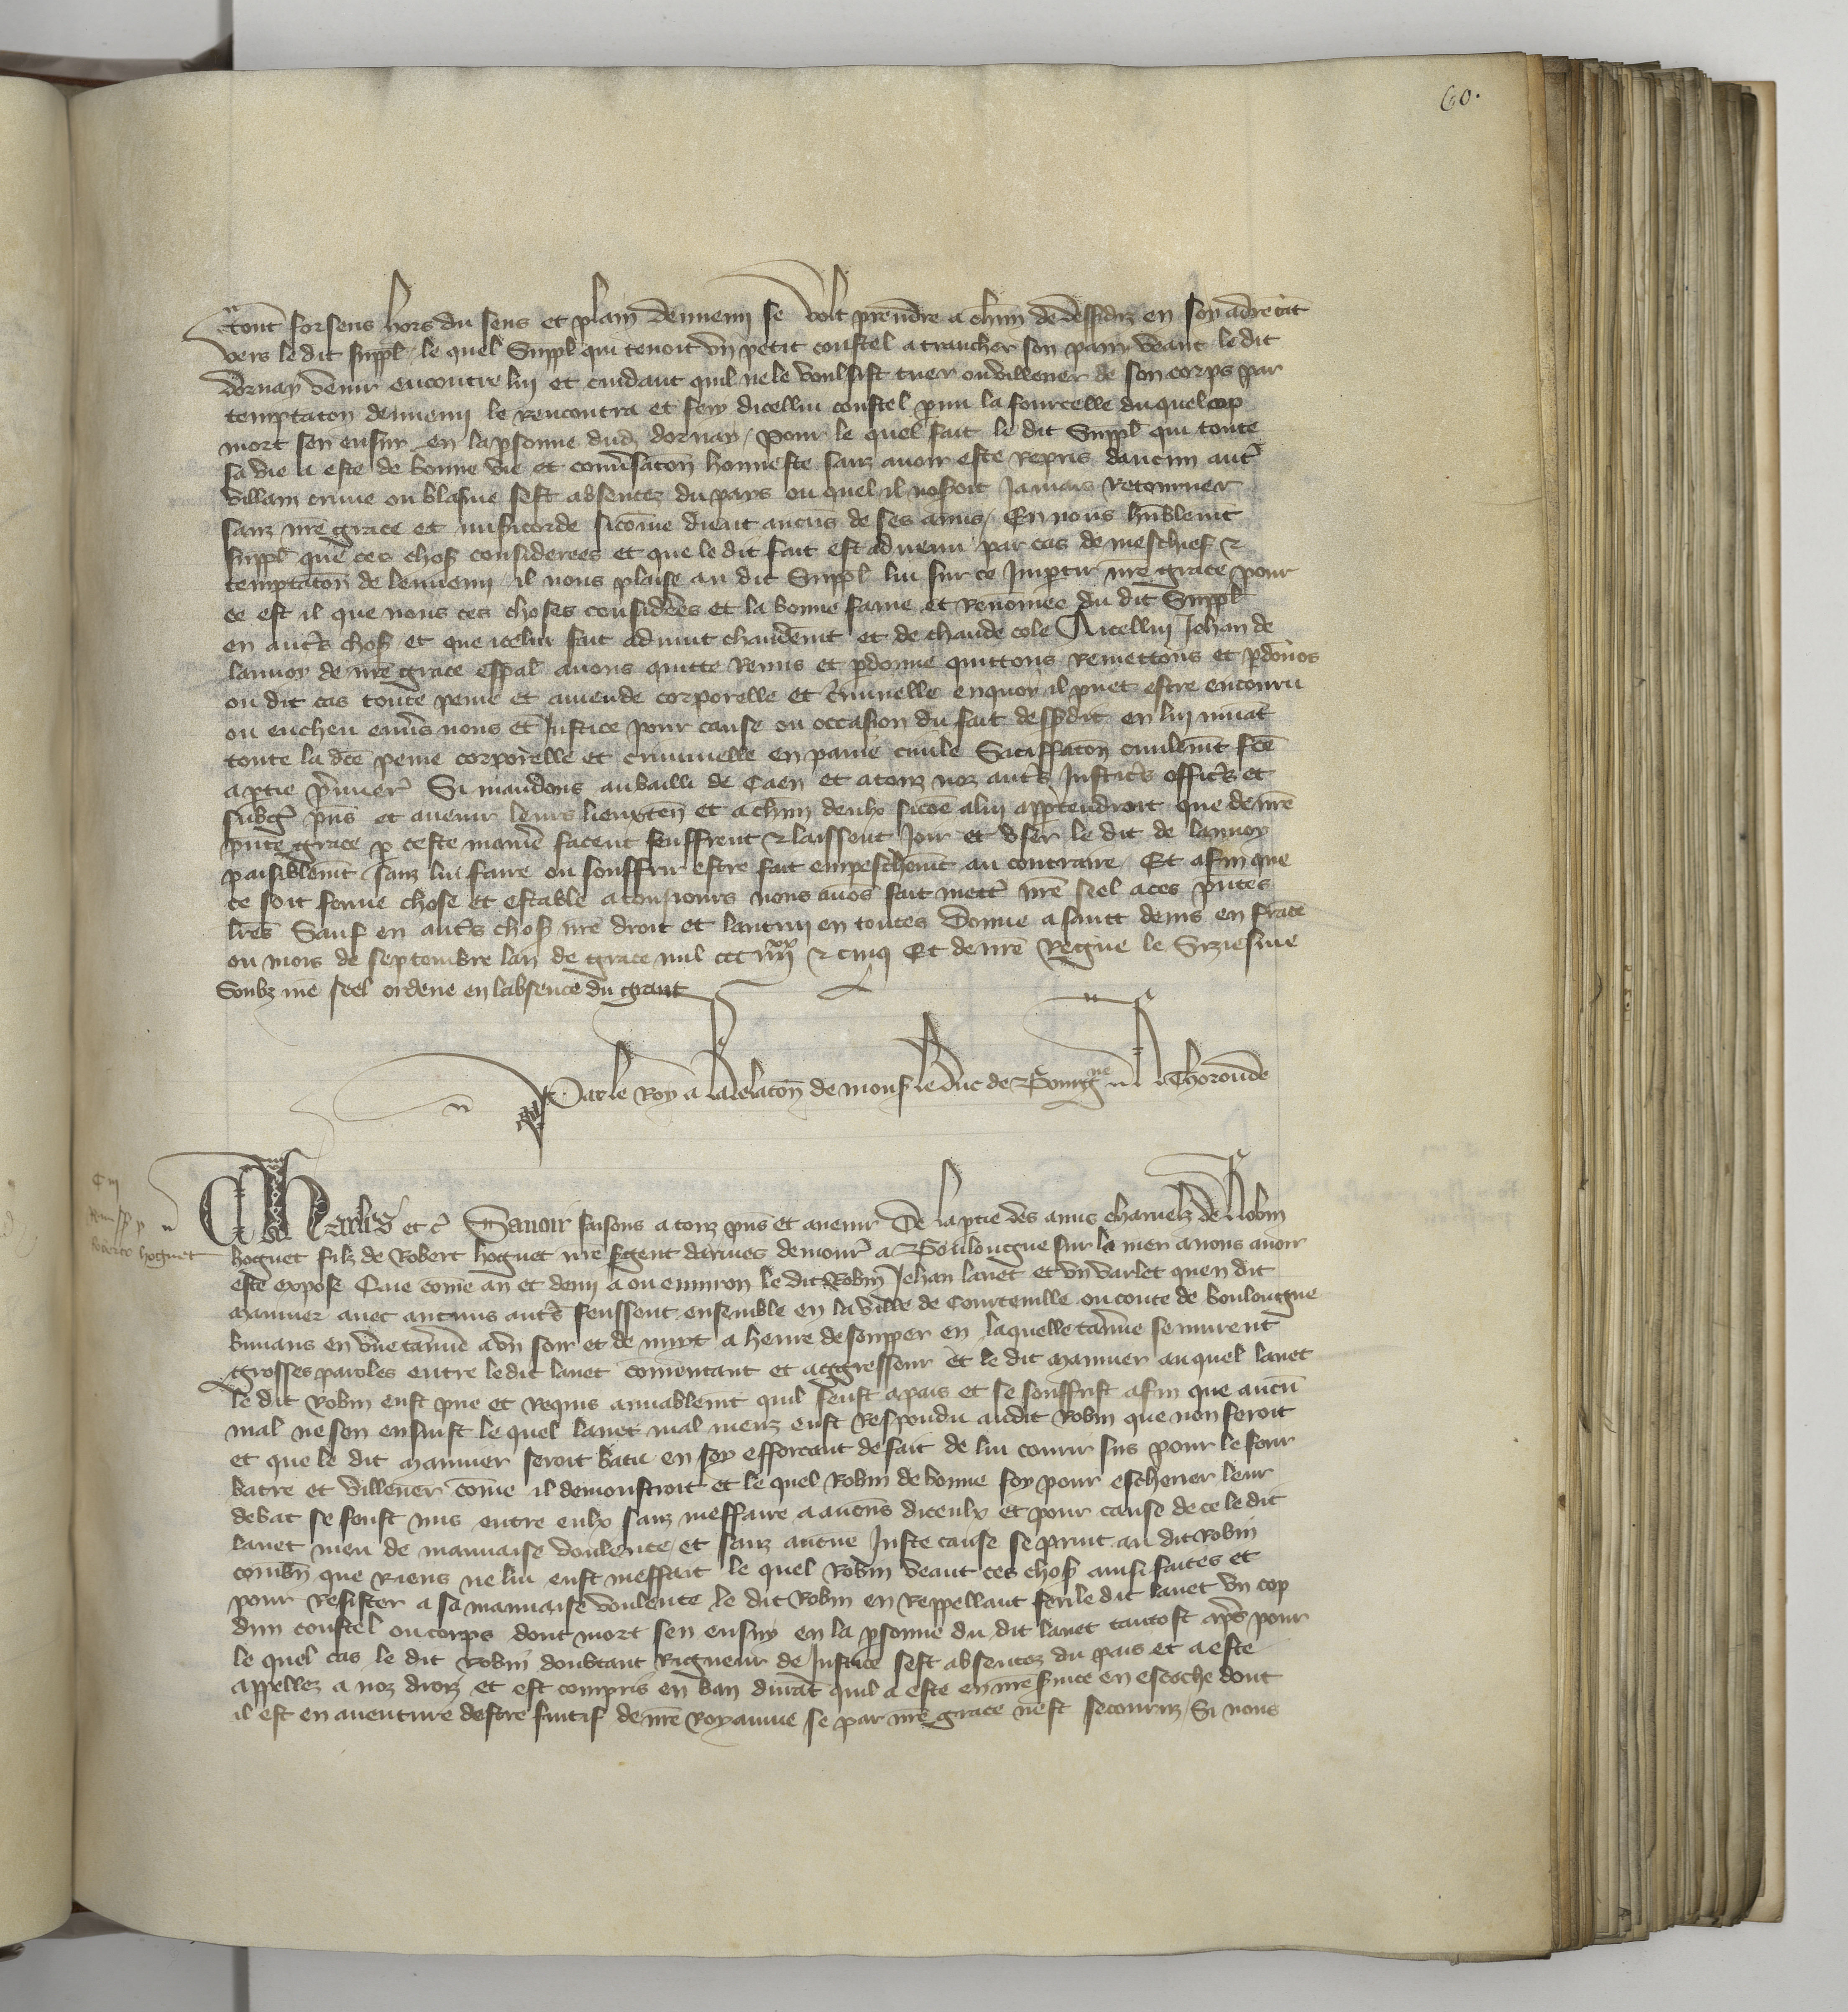 60.
Tout forsens hors du sens et plain dennemi se volt prendre a chun de dessusdiz en soy adrecat
vers le dit suppl le quel Suppl qui tenoit vn petit coustel a trancher son pain veant le dit
dornay venir encontre lui et cuidant quil ne le voulsist tuer ou villener de son corps par
temptacon dennemi le Rencontra et fery dicellui coustel pmi la fourcelle du quel cop
mort sen ensuy en la psonne dud dornay / Pour le quel fait le dit Suppl qui toute
sa vie a este de bonne vie et conusacon honneste sanz auoir este repris daucun aut
villain crime ou blasme sest absentez du pays ou quel il noseroit Jamais Retourner
sanz nre grace et misicorde sicome dient aucus de ses amis / En nous humblemt
suppl que ces chos considerees et que le dit fait est aduenu par cas de meschief &
temptacon de lennemi il nous plaise au dit Suppl lui sur ce Impartir nre grace pour
ce est il que nous ces choses considerees et la bonne fame et Renomee du dit Suppl
en auts chos et que icelui fait aduint chaudemt et de chaude cole A icellui Jehan de
lannoy de nre grace espal auons quitte Remis et pdonne quittons Remettons et pdonos
ou dit cas toute peine et amende corporelle et criminelle enquoy il puet estre encouru
ou encheu enuers nous et Justice pour cause ou occasion du fait dessusdit en lui muat
toute la dce peine corporelle et criminelle en paine ciuile Satiffacon ciuilemt fce
a ptie pmier Si mandons au bailli de Caen et a touz noz auts Justiciers officrs et
subgz pns et auenir leurs lieuxten et a chun deulx sicoe a lui appartendroit que de nre
pnte grace p ceste maniere facent seuffrent & laissent Joir et vser le dit de lannoy
paisiblemt sanz lui faire ou souffrir estre fait empeschemt au contraire Et afin que
ce soit ferme chose et estable a tousjours nous auos fait mettre nre seel a ces pntes
lres Sauf en auts chos nre droit et lautrui en toutes Donne a saint denis en france
ou mois de Septembre lan de grace mil ccc iiiixx & cinq Et de nre Regne le Siziesme
Soubz nre seel ordene en labsence du grant
Par le Roy a la relacon de mons le duc de Bourgne
hoguet
Charles et c Sauoir faisons a touz pns et auenir De la ptie des amis charnelz de Robin
hoguet filz de Robert hoguet nre sgent darmes demour a Boulongne sur la mer a nous auoir
este expose Que come an et demi a ou enuiron le dit Robin Jehan lauet et vn varlet quen dit
Manner auec aucuns auts feussent ensemble en la ville de Courteuille ou conte de boulongne
buuans en vne tauerne a vn soir et de nuyt a heure de soupper en laquelle tauerne se murent
grosses paroles entre le dit lauet comencant et aggresseur et le dit Manner auquel lauet
le dit Robin eust prie et Requis amiablemt quil feust a pais et se souffrist afin que aucu
mal ne sen ensuist le quel lauet mal meuz eust Respondu audit Robin que non feroit
et que le dit Manner seroit batu en soy efforcant de fait de lui courir sus pour le ferir
batre et villener come il demonstroit et le quel Robin de bonne foy pour escheuer leur
debat se feust mis entre eulx sanz meffaire a aucuns diceulx et pour cause de ce le dit
lauet meu de mauuaise voulente et sanz aucune Juste cause se prinst au dit Robin
combn que Riens ne lui eust meffait le quel Robin veant ces chos ainsi faites et
pour Resister a sa mauuaise voulente le dit Robin en Reppellant feri le dit lauet vn cop
dun coustel ou corps dont mort sen ensuy en la psonne du dit lauet tantost aps pour
le quel cas le dit Robin doubtant Rigueur de Justice sest absentez du pais et a este
appellez a noz droiz et est compris en ban durat quil a este en nre seruice en escoche dont
il est en auenture destre fuitif de nre Royaume se par nre grace nest secouruz / Si nous